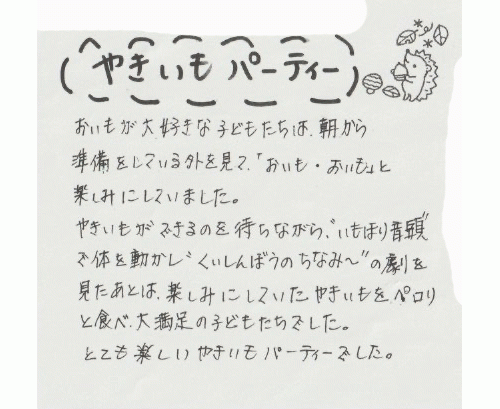 やきいもパーティー
おいもが大好きな子どもたちは、朝から
準備をしている外を見て、「おいも・おいも」と
楽しみにしていました。
やきいもができるのを待ちながら、"いもほり音頭"
で体を動かし"くいしんぼうのちなみ〜"の劇を
見たあとは、楽しみにしていたやきいもをペロリ
と食べ、大満足の子どもたちでした。
とても楽しいやきいもパーティーでした。